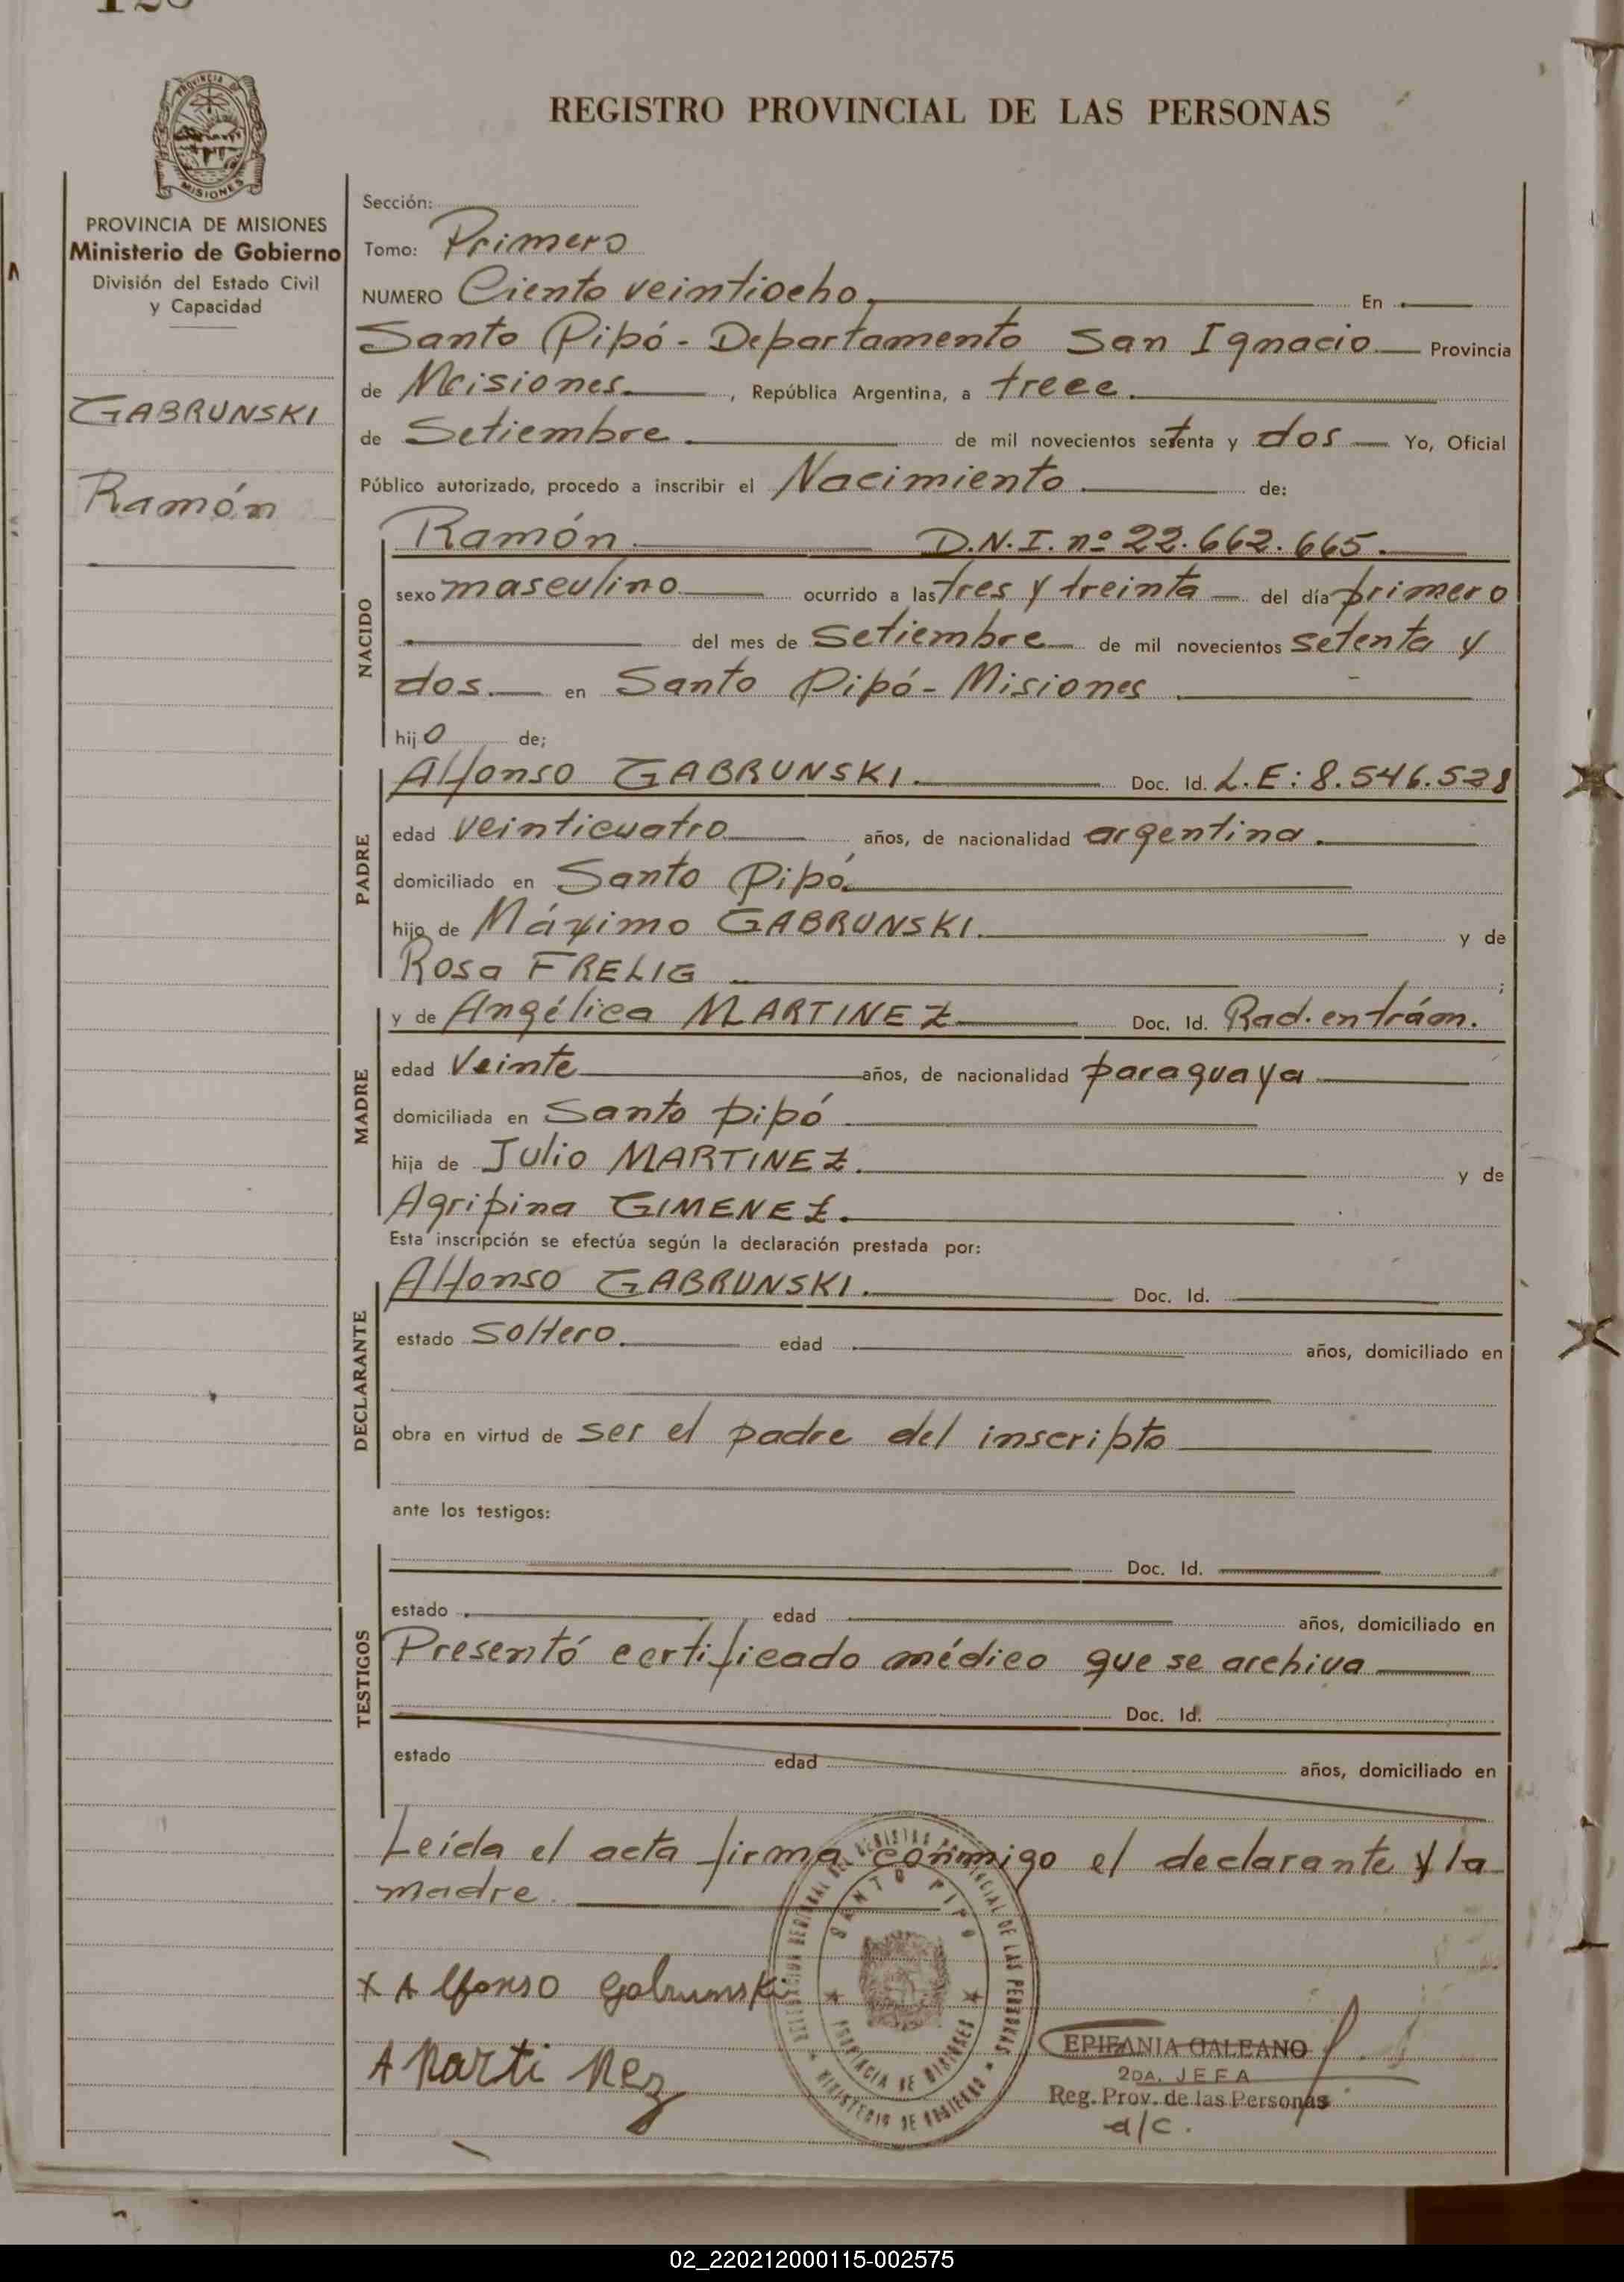 REGISTRO PROVINCIAL DE LAS PERSONAS
PROVINCIA DE
MISIONES
PROVINCIA DE MISIONES
Ministerio de Gobierno
División del Estado Civil
y Capacidad
GABRUNSKI
Ramón
Sección:
Tomo: Primero
NUMERO Ciento veintiocho, En
Santo Pipó - Departamento San Ignacio Provincia
de Misiones , República Argentina, a trece
de Setiembre de mil novecientos setenta y dos Yo, Oficial
Público autorizado, procedo a inscribir el Nacimiento de:
NACIDO
Ramón D.N.I. nº 22.662.665.
sexo masculino ocurrido a las tres y treinta del día primero
del mes de Setiembre de mil novecientos setenta y
dos. en Santo Pipó - Misiones
hijo de;
PADRE
Alfonso GABRUNSKI. Doc. Id. L.E: 8.546.528
edad veinticuatro años, de nacionalidad argentina.
domiciliado en Santo Pipó.
hijo de Máximo GABRUNSKI. y de
Rosa FRELIG ;
MADRE
y de Angélica MARTINEZ Doc. Id. Rad. en trám.
edad Veinte años, de nacionalidad paraguaya
domiciliada en Santo Pipó
hija de Julio MARTINEZ. y de
Agripina GIMENEZ.
Esta inscripción se efectúa según la declaración prestada por:
DECLARANTE
Alfonso GABRUNSKI. Doc. Id.
estado soltero. edad años, domiciliado en
obra en virtud de ser el padre del inscripto
ante los testigos:
TESTIGOS
Doc. Id.
estado edad años, domiciliado en
Presentó certificado médico que se archiva
Doc. Id.
estado edad años, domiciliado en
Leída el acta firma conmigo el declarante y la
madre.
SANTO PIPO
PROVINCIA DE MISIONES
MINISTERIO DE GOBIERNO
X Alfonso Gabrunski
A Marti Nez
EPIFANIA GALEANO
2DA. JEFA
Reg. Prov. de las Personas
a/c.
02_220212000115-002575